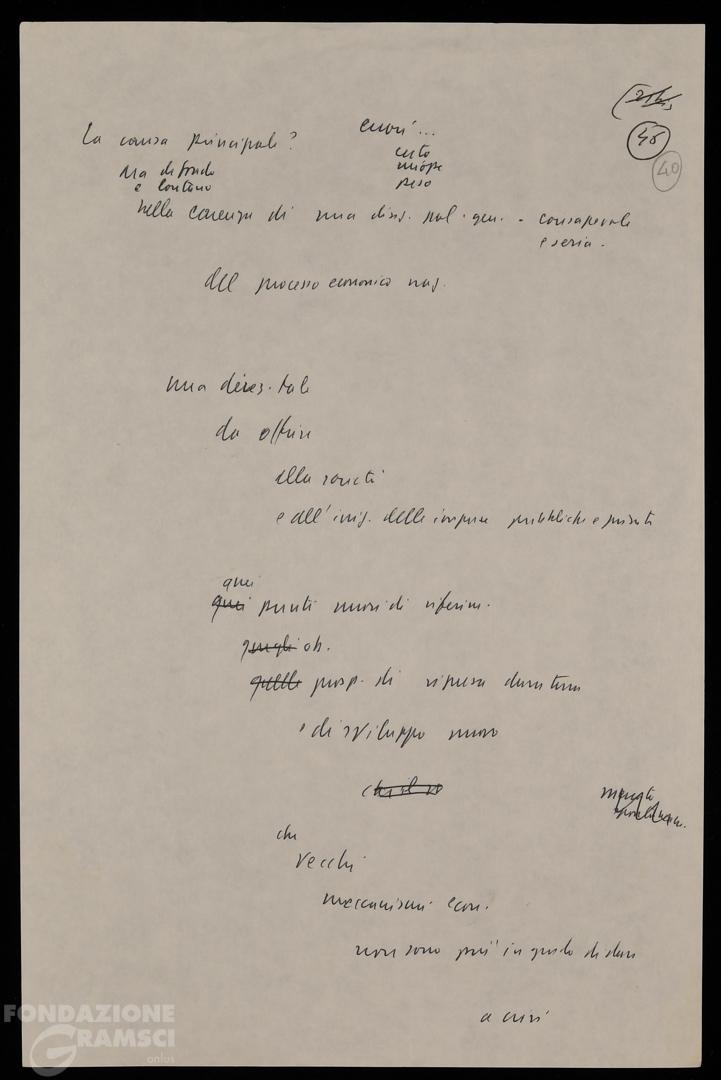 45
40
La causa principale? errori...
certo
miope
peso
ma di fondo
e lontano
nella carenza di una direz. pol. gen. - consapevole
e seria.
del processo economico naz.
una direz. tale
da offrire
alla società
e all'insg. delle imprese pubbliche e private
quei
quei punti nuovi di riferim.
quegli ob.
quelle prosp. di ripresa duratura
e di sviluppo nuovo
che
vecchi
meccanismi econ.
non sono più in grado di dare
a crisi
FONDAZIONE
GRAMSCI
onlus